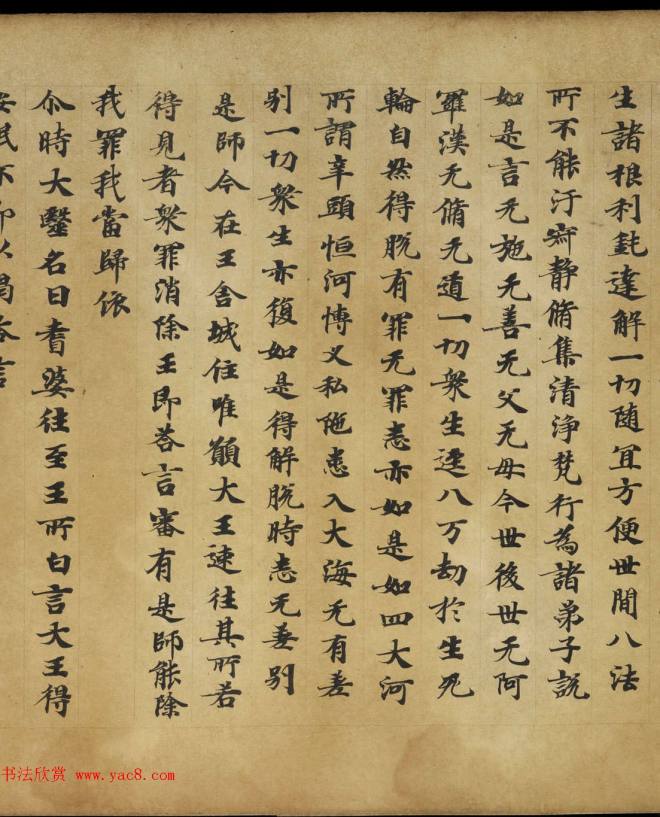 生諸根利鈍達解一切随冝方便世間八法
所不能汙寂静脩集清浄梵行為諸弟子説
如是言无施无善无父无母今世後世无阿
羅漢无脩无道一切衆生逕八万劫於生死
輪自然得脱有罪无罪悉亦如是如四大河
所謂辛頭恒河博义私陁悉入大海无有差
别一切衆生亦復如是得解脱時悉无差别
是師今在王舍城住唯願大王速往其所若
得見者衆罪消除王即荅言審有是師能除
我罪我當歸依
尒時大毉名曰耆婆往至王所白言大王得
安眠不即以偈荅言
书法欣赏 www.yac8.com